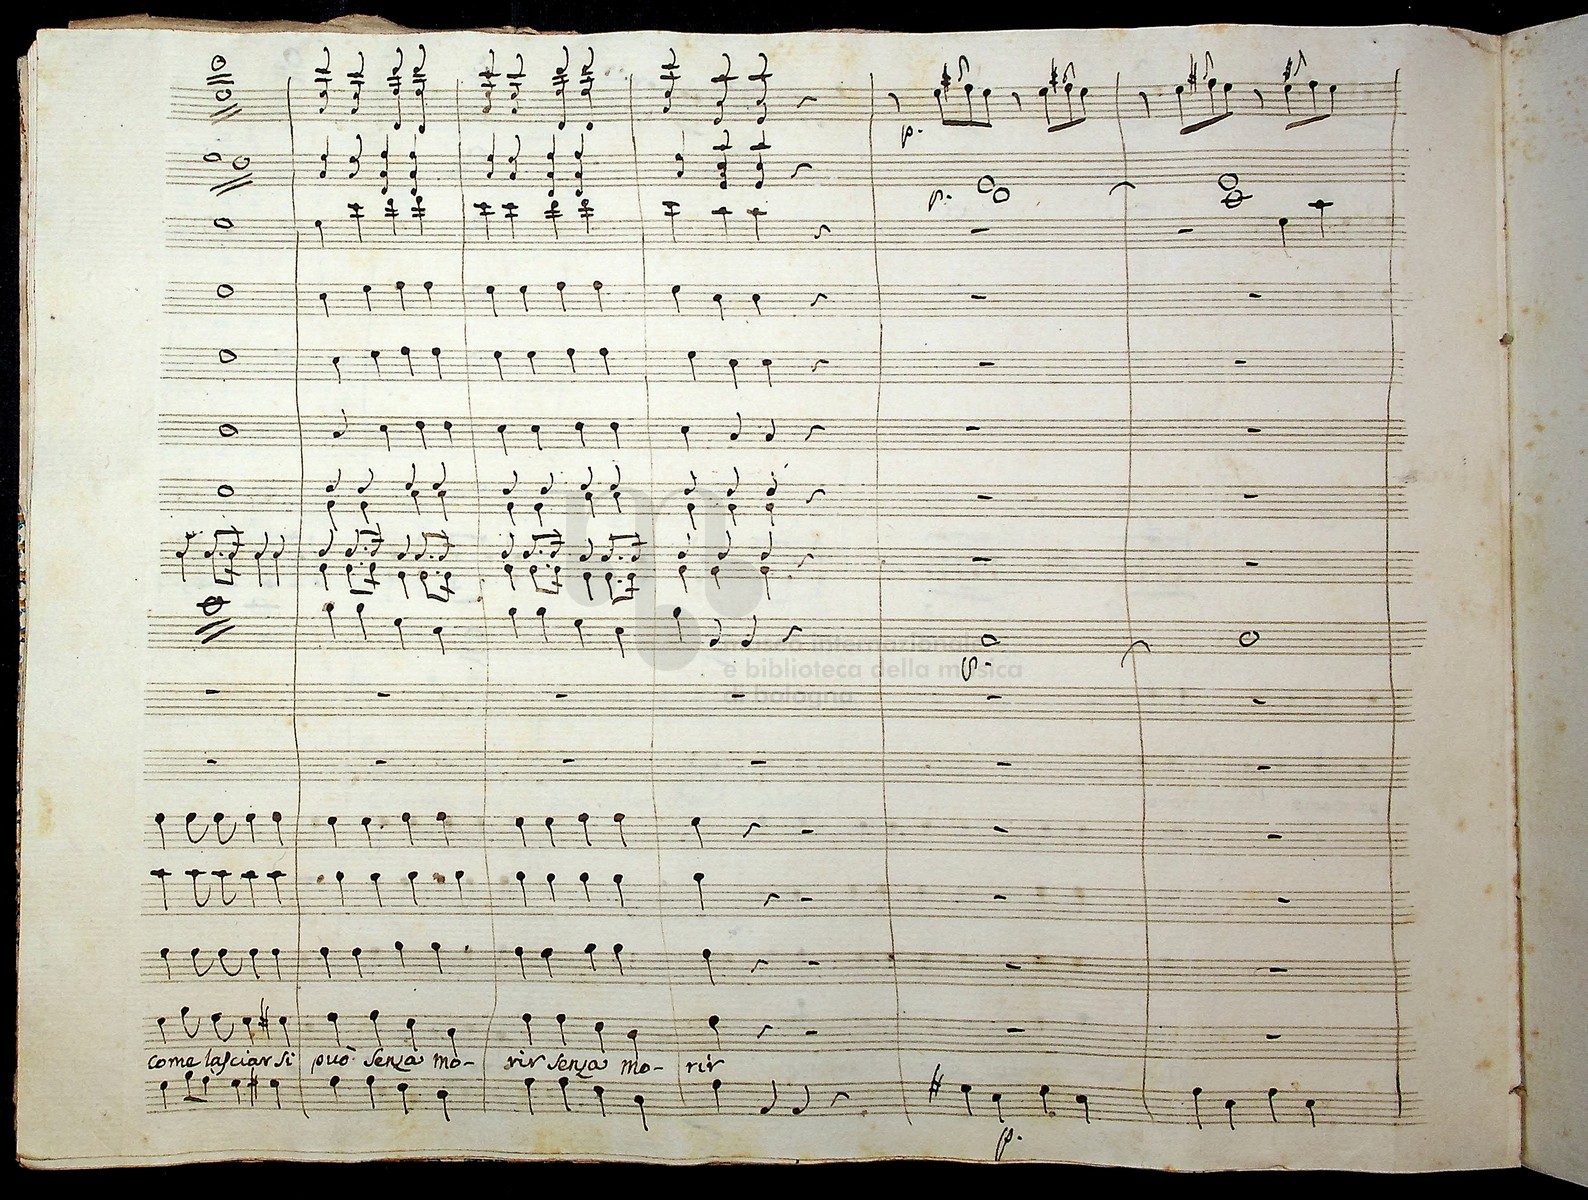 p.
p.
museo internazionale
e biblioteca della musica
di bologna
p.
come lasciar si può senza mo- rir senza mo- rir
p.